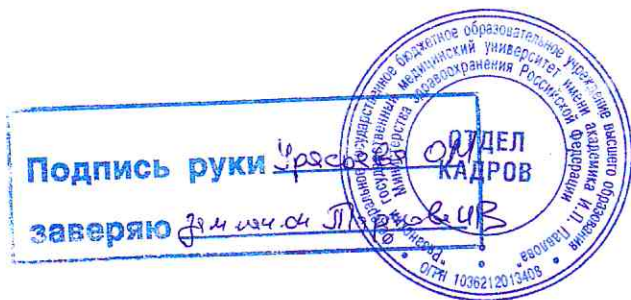 Подпись руки Урясьева ОМ
заверяю
Федеральное государственное бюджетное образовательное учреждение высшего образования
"Рязанский государственный медицинский университет имени академика И.П. Павлова"
Министерства здравоохранения Российской Федерации
ОТДЕЛ
КАДРОВ
ОГРН 1036212013408